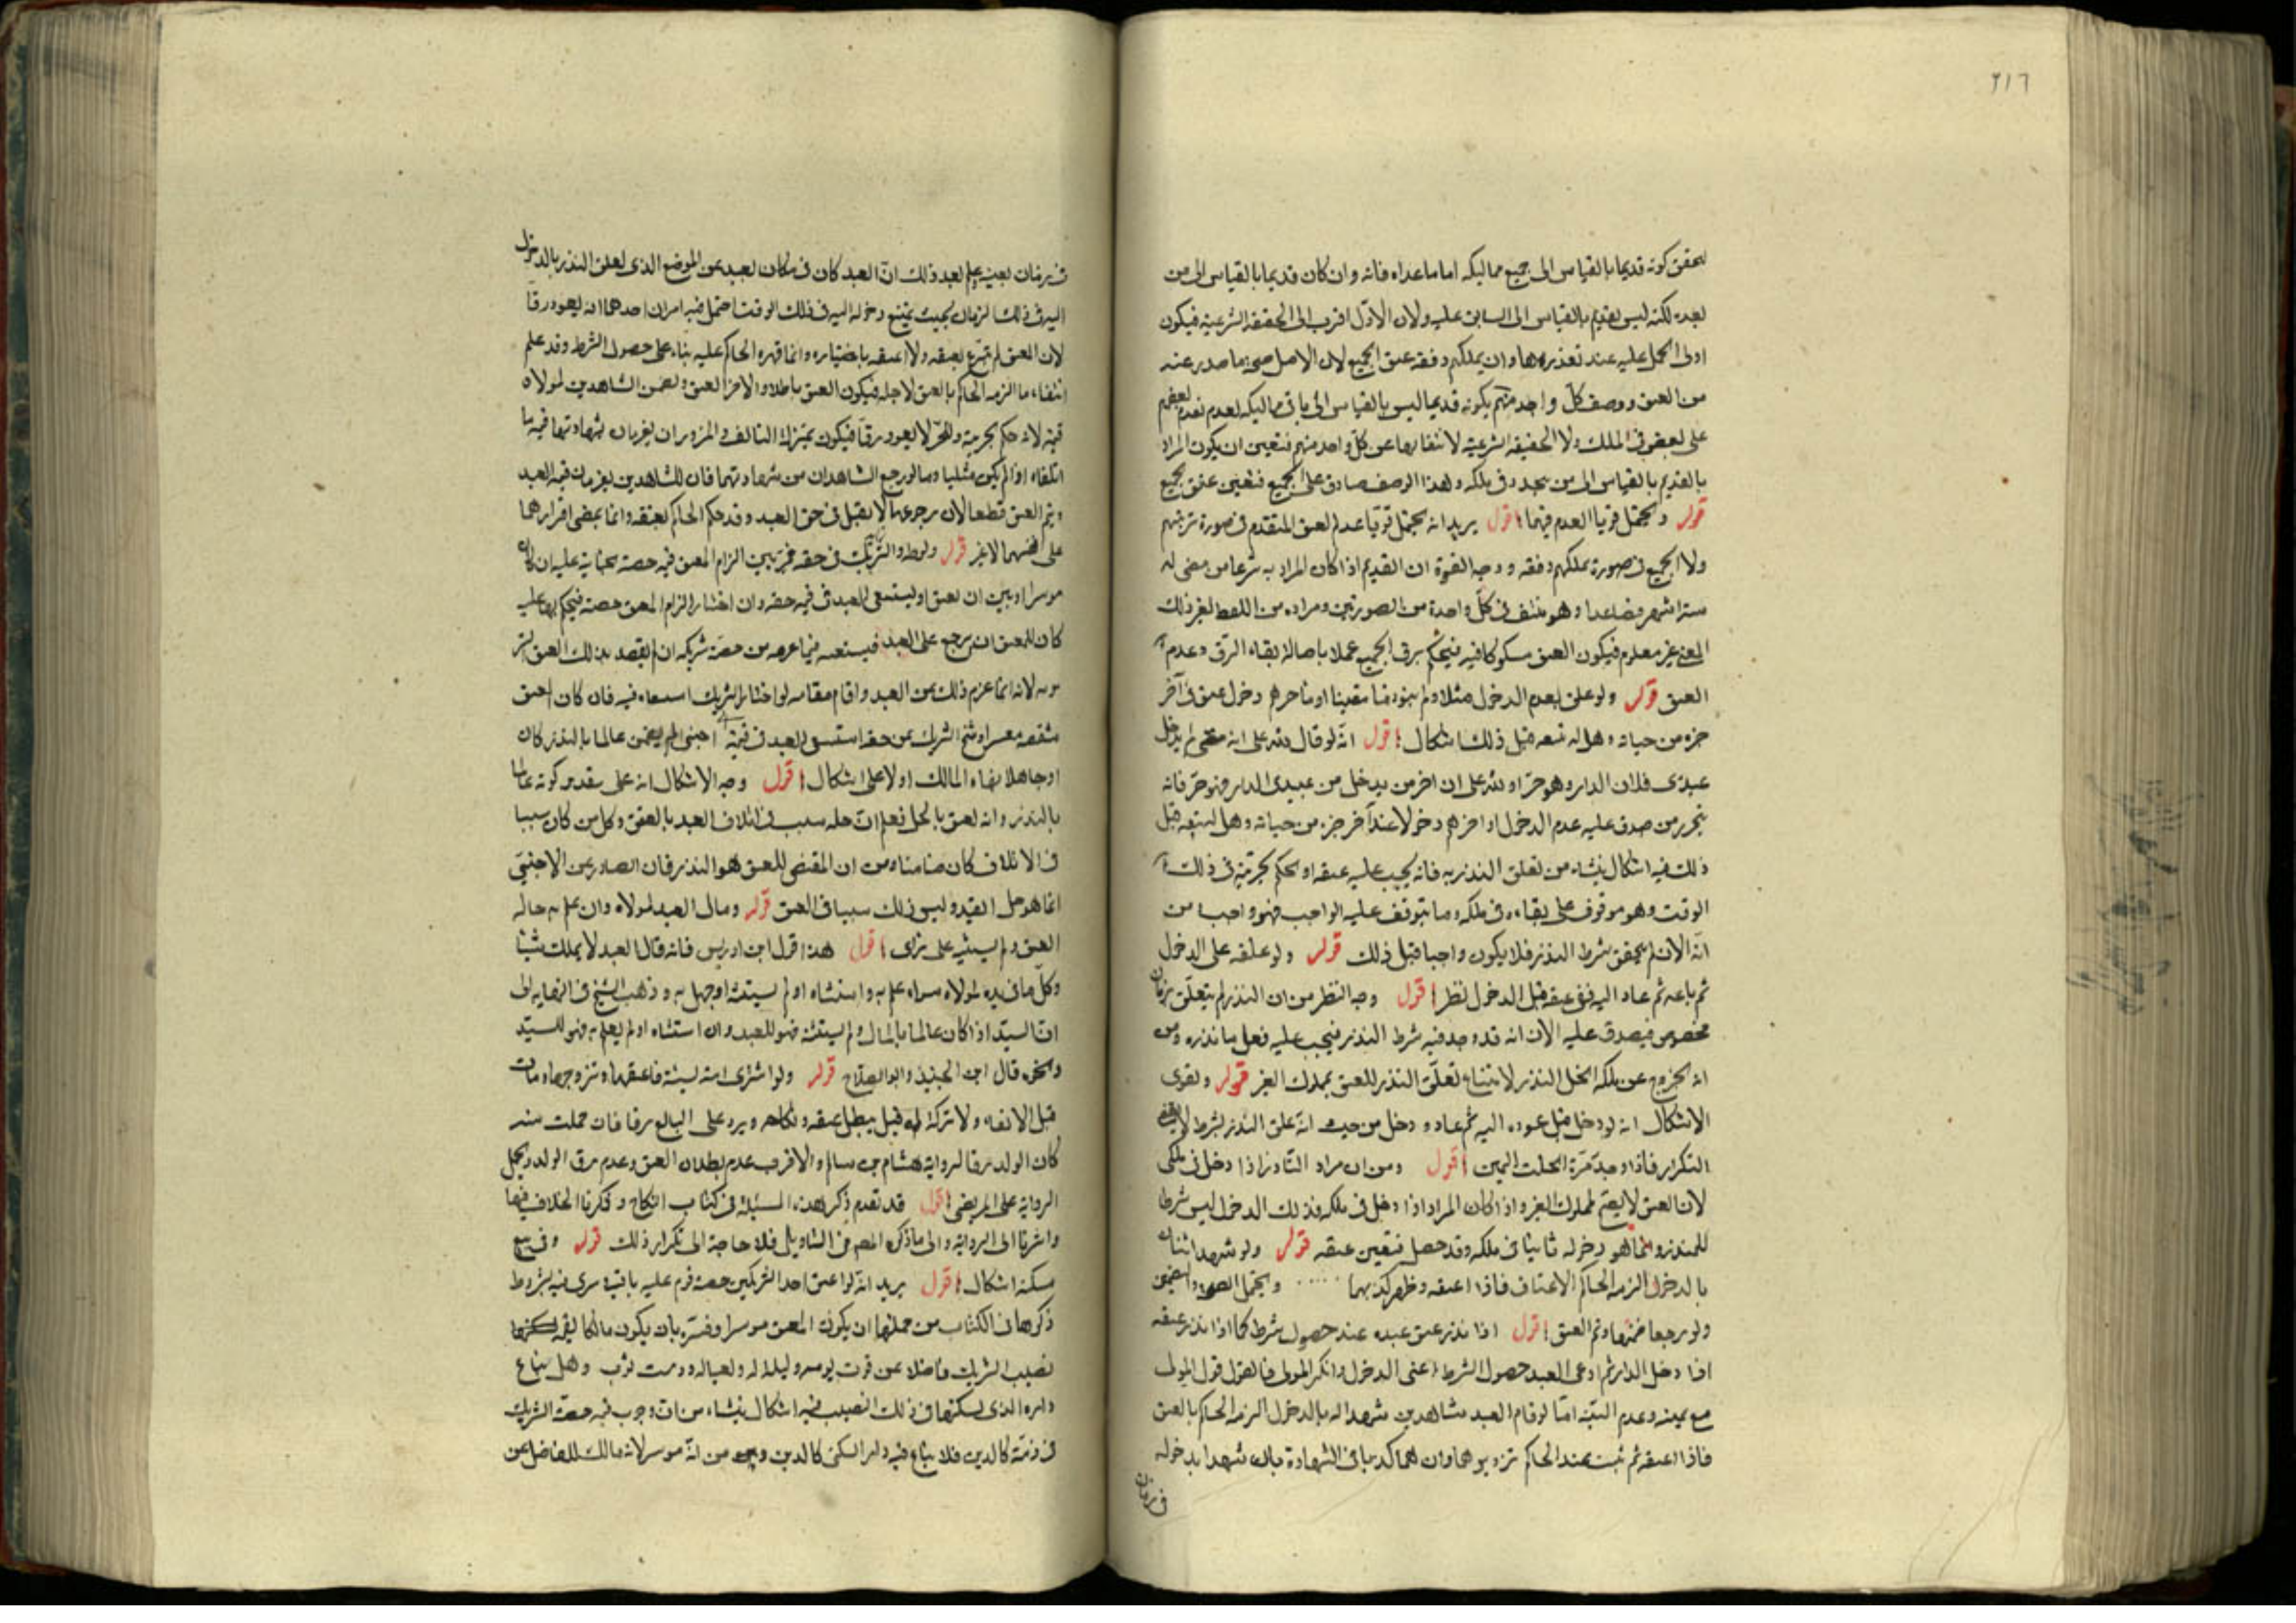 ٢١٦
لتحقق كونه قديما بالقياس الى جميع مماليكه اما ما عداه فانه وان كان قديما بالقياس الى من
بعده لكنه ليس بقديم بالقياس الى السابق عليه ولان الاول اقرب الى الحقيقة الشرعية فيكون
اولى الحمل عليه عند تعذرها وان يملكهم دفعة عتق الجميع لان الاصل صحة ما صدر عنه
من العتق ووصف كل واحد منهم بكونه قديما ليس بالقياس الى باقى مماليكه لعدم تقدم بعضهم
على بعض فى الملك ولا الحقيقة الشرعية لانتفائها عن كل واحد منهم فتعين ان يكون المراد
بالقديم بالقياس الى من يتجدد فى ملكه وهذا الوصف صادق على الجميع فتعين عتق الجميع
قوله ويحتمل قويا العدم فيهما اقول يريد انه يحتمل قويا عدم العتق المتقدم فى صورة ترتبهم
ولا الجميع فى صورة تملكهم دفعة ووجه القوة ان القديم اذا كان المراد به شرعا من مضى له
ستة اشهر فصاعدا وهو منتف فى كل واحدة من الصورتين ومراده من اللفظ لغير ذلك
المعنى غير معلوم فيكون العتق مشكوكا فيه فيحكم برق الجميع عملا باصالة بقاء الرق وعدم
العتق قوله ولو علق بعدم الدخول مثلا ولم ينو وقتا معينا او باخرهم دخول عتق فى آخر
جزء من حياته وهل له بيعه قبل ذلك اشكال اقول انه لو قال لله على انه متى لم يدخل
عبدى فلان الدار وهو حر او لله على ان اخر من يدخل من عبيدى الدار فهو حر فانه
يتحرر من صدق عليه عدم الدخول او اخرهم دخولا عند آخر جزء من حياته وهل له بيعه قبل
ذلك فيه اشكال ينشاء من تعلق النذر به فانه يجب عليه عتقه او الحكم بحريته فى ذلك
الوقت وهو موقوف على بقاءه فى ملكه وما يتوقف عليه الواجب فهو واجب من
انه الان لم يتحقق شرط النذر فلا يكون واجبا قبل ذلك قوله ولو علقه على الدخول
ثم باعه ثم عاد اليه ففى عتقه قبل الدخول نظر اقول وجه النظر من ان النذر لم يتعلق بزمان
مخصوص فيصدق عليه الان انه قد وجد فيه شرط النذر فيجب عليه فعل ما نذره ومن
انه بخروج عن ملكه انحل النذر لامتناع تعلق النذر للعتق بمملوك الغير قوله ويقوى
الاشكال انه لو دخل قبل عوده اليه ثم عاد ودخل من حيث انه علق النذر بشرط لا يقتضى
التكرار فاذا وجد مرة انحلت اليمين اقول ومن ان مراد الناذر اذا دخل فى ملكى
لان العتق لا يصح لمملوك الغير واذا كان المراد اذا دخل فى ملكه فذلك الدخول ليس شرطا
للنذر وانما هو دخوله ثانيا فى ملكه وقد حصل فتعين عتقه قوله ولو شهد اثنان
بالدخول الزمه الحاكم الاعتاق فاذا اعتقه وظهر كذبهما ..... ويحتمل الصحة والتضمين
ولو رجعا ضمنا وتم العتق اقول اذا نذر عتق عبده عند حصول شرط كما اذا نذر عتقه
اذا دخل الدار ثم ادعى العبد حصول الشرط اعنى الدخول وانكر المولى فالقول قول المولى
مع يمينه وعدم البينة اما لو اقام العبد شاهدين شهدا له بالدخول الزمه الحاكم بالعتق
فاذا اعتقه ثم ثبت عند الحاكم تزويرهما وانهما كذبا فى الشهادة بان شهدا بدخوله
فى زمان
فى زمان بعينه علم بعد ذلك ان العبد كان فى مكان بعيد عن الموضع الذى تعلق النذر بالدخول
اليه فى ذلك الزمان بحيث يمتنع دخوله اليه فى ذلك الوقت احتمل فيه امران احدهما ان يعود رقا
لان المعتق لم يتبرع بعتقه ولا اعتقه باختياره وانما قهره الحاكم عليه بناء على حصول الشرط وقد علم
انتفاء ما الزمه الحاكم بالعتق لاجله فيكون العتق باطلا والاخر العتق وتضمن الشاهدين لمولاه
قيمته لانه حكم بحريته والحر لا يعود رقا فيكون بمنزلة التالف والمزوران يغرمان بشهادتهما قيمة ما
اتلفاه اذا لم يكن مثليا وما لو رجع الشاهدان من شهادتهما فان للشاهدين يغرمان قيمة العبد
ويتم العتق قطعا لان رجوعهما لا يقبل فى حق العبد وقد حكم الحاكم بعتقه وانما يمضى اقرارهما
على انفسهما لا غير قوله والشريك فى حقه مخير بين الزام المعتق قيمة حصته بجناية عليه ان كان
موسرا وبين ان يعتق او يستسعى العبد فى قيمة حقه وان اختار الزام المعتق حصته فيحكم بها عليه
كان للمعتق ان يرجع على العبد فيستسعيه فيما غرمه من حصة شريكه ان لم يقصد بذلك العتق
لانه انما غرم ذلك عن العبد واقام مقامه لو اختار الشريك استسعاءه فيه فان كان اعتق
شقصه معسرا وشح الشريك من حقه استسعى العبد فى قيمته اجنبى لم يضمن عالما بالنذر كان
او جاهلا نهاه المالك او لا على اشكال اقول وجه الاشكال انه على تقدير كونه عالما
بالنذر وانه يعتق بالحل فعلم ان حله سبب فى اتلاف العبد بالعتق وكل من كان سببا
فى الاتلاف كان ضامنا ومن ان المقتضى للعتق هو النذر فان الصادر من الاجنبى
انما هو حل القيد وليس ذلك سببا فى العتق قوله ومال العبد لمولاه وان علم به حالة
العتق ولم يستثنه على راى اقول هذا قول ابن ادريس فانه قال العبد لا يملك شيئا
وكل ما فى يده لمولاه سواء علم به واستثناه او لم يستثنه او جهل به وذهب الشيخ فى النهاية الى
ان السيد اذا كان عالما بالمال ولم يستثنه فهو للعبد وان استثناه او لم يعلم به فهو للسيد
ونحوه قال ابن الجنيد وابو الصلاح قوله ولو اشترى امة نسيئة فاعتقها وتزوجها ومات
قبل الايفاء ولا تركة له قيل يبطل عتقه ونكاحه ويرد على البائع رقا فان حملت منه
كان الولد رقا لرواية هشام بن سالم والاقرب عدم بطلان العتق وعدم رق الولد وتحمل
الرواية على المريض اقول قد تقدم ذكر هذه المسئلة فى كتاب النكاح وذكرنا الخلاف فيها
واشرنا الى الرواية والى ما ذكره المص فى التاويل فلا حاجة الى تكرار ذلك قوله وفى بيع
مسكنه اشكال اقول يريد انه لو اعتق احد الشريكين حصته قوم عليه باقيه وسرى فيه بشروط
ذكرها فى الكتاب من جملتها ان يكون المعتق موسرا وفسره بان يكون مالكا
نصيب الشريك فاضلا عن قوت يومه وليلة له ولعياله ودست ثوب وهل يباع
داره الذى يسكنها فى ذلك النصيب فيه اشكال ينشاء من ان وجوب قيمة حصة الشريك
فى ذمته كالدين فلا يباع فيه دار السكنى كالدين ومن انه موسر لانه مالك للفاضل عن